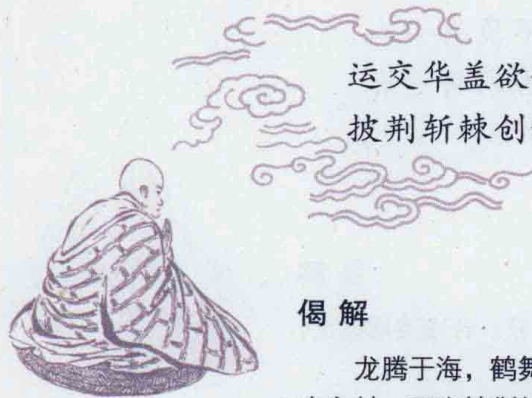 运交华盖欲
披荆斩棘创
偈解
龙腾于海，鹤舞